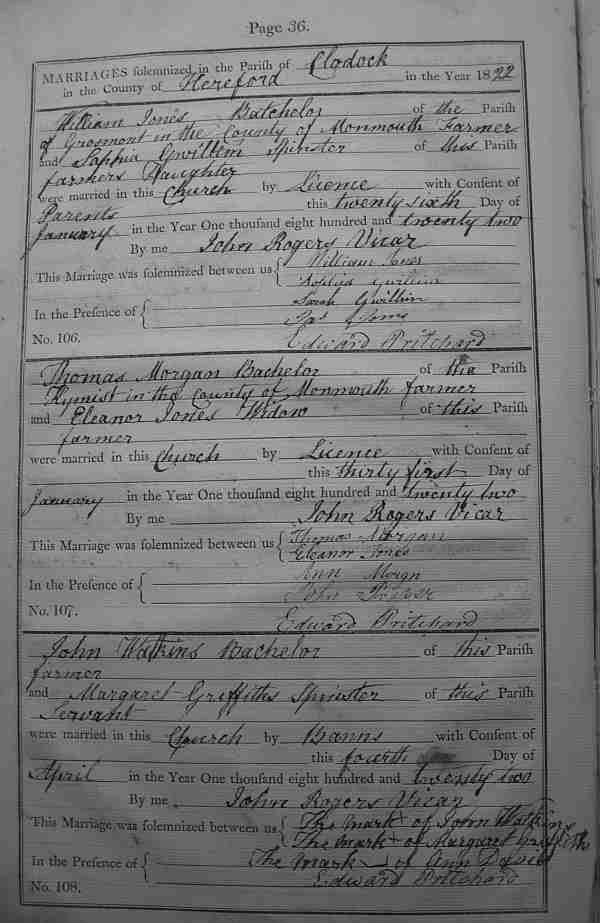 Page 36.
MARRIAGES solemnized in the Parish of Clodock
in the County of Hereford in the Year 1822
William Jones Batchelor of the Parish
of Grosmont in the County of Monmouth Farmer
and Sophia Gwillim Spinster of this Parish
farmers Daughter
were married in this Church by Licence with Consent of
Parents this twenty sixth Day of
January in the Year One thousand eight hundred and twenty two
By me John Rogers Vicar
This Marriage was solemnized between us William Jones
Sophia Gwillim
In the Presence of Sarah Gwillim
Jas
No. 106. Edward Pritchard
Thomas Morgan Bachelor of the Parish
in the County of Monmouth farmer
and Eleanor Jones Widow of this Parish
farmer
were married in this Church by Licence with Consent of
this thirty first Day of
January in the Year One thousand eight hundred and twenty two
By me John Rogers Vicar
This Marriage was solemnized between us Thomas Morgan
Eleanor Jones
In the Presence of Ann Morgn
John
No. 107. Edward Pritchard
John Watkins Bachelor of this Parish
farmer
and Margaret Griffiths Spinster of this Parish
Servant
were married in this Church by Banns with Consent of
this fourth Day of
April in the Year One thousand eight hundred and twenty two
By me John Rogers Vicar
This Marriage was solemnized between us The mark of John Watkin
The mark of Margaret Griffiths
In the Presence of The mark of Ann Davies
No. 108. Edward Pritchard